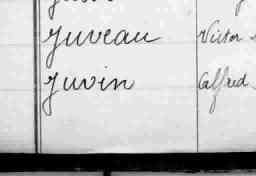 Juveau Victor
Juvin Alfred